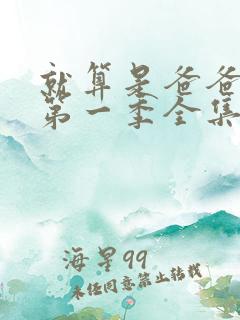 就算是爸爸
第一季全集
海星99
未经同意禁止转载